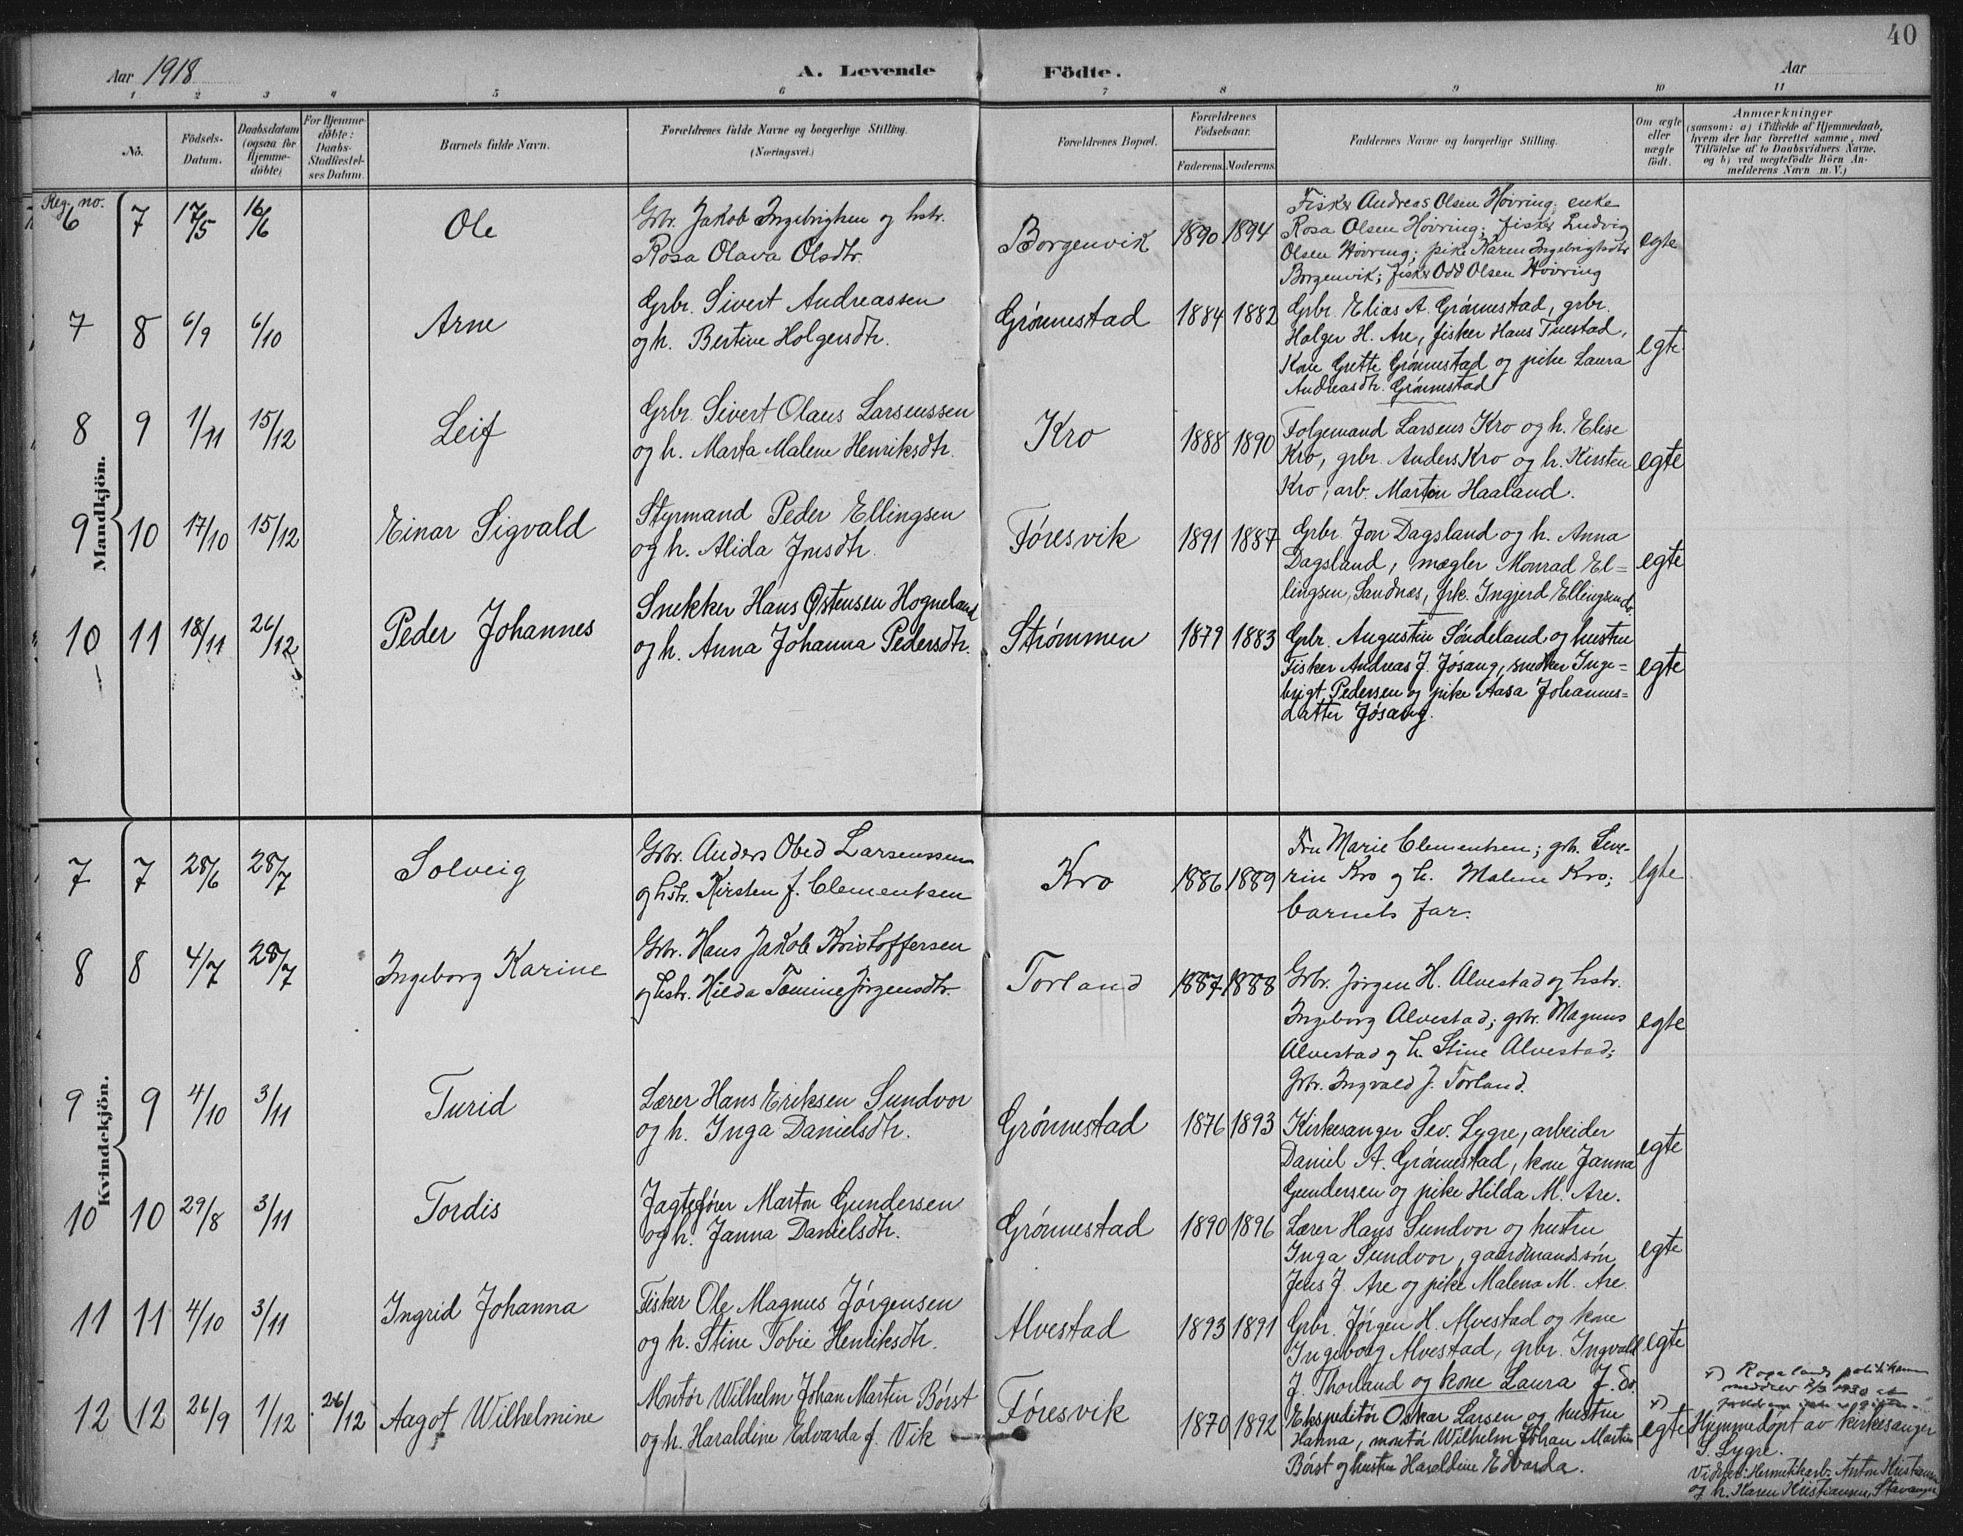 40
Aar 1918
A. Levende Födte.
Aar
1. 2 3 4 5 6 7 8 9 10 11
No.
Födsels-Datum.
Daabsdatum (ogsaa for Hjemme-döbte)
For Hjemme-döbte: Daabs-Stadfæstel-ses Datum.
Barnets fulde Navn.
Forældrenes fulde Navne og borgerlige Stilling. (Næringsvei.)
Forældrenes Bopæl.
Forældrenes Födselsaar.
Faderens. Moderens.
Faddernes Navne og borgerlige Stilling.
Om ægte eller uægte födt.
Anmærkninger
(saasom: a) i Tilfælde af Hjemmedaab,
hvem der har forrettet samme, med
Tilföielse af to Daabsvidners Navne,
og b) ved uægtefödte Börn An-
melderens Navn m. V.)
Reg. no.
Mandkjön.
6 7 17/5 16/6 Ole
Gbr. Jakob Ingebrigtsen og hstr.
Rosa Olava Olsdtr.
Borgenvik 1890 1894
Fisker Andreas Olsen Høvring; enke
Rosa Olsen Høvring; fisker Ludvig
Olsen Høvring; pike Karen Ingebrigtsdtr
Borgenvik; fisker Odd Olsen Høvring
egte
7 8 6/9 6/10 Arne
Grbr. Sivert Andreassen
og h. Bertine Holgersdtr.
Grønnestad 1884 1882
Grbr. Elias A. Grønnestad, grbr.
Holger H. Are, fisker Hans Tuestad,
Kone Grette Grønnestad og pike Laura
Andreasdtr. Grønnestad
egte
8 9 1/11 15/12 Leif
Grbr. Sivert Olaus Larsenssen
og h. Marta Malene Henriksdtr.
Kro 1888 1890
Folgemand Larsens Kro og h. Elise
Kro, grbr. Anders Kro og h. Kirsten
Kro, arb. Marton Haaland.
egte
9 10 17/10 15/12 Einar Sigvald
Styrmand Peder Ellingsen
og h. Alida Jonsdtr.
Føresvik 1891 1887
Grbr. Jon Dagsland og h. Anna
Dagsland, mægler Monrad El=
lingsen, Sandnæs, frk. Ingjerd Ellingsen do.
egte
10 11 18/11 26/12 Peder Johannes
Snekker Hans Østensen Hogneland
og h. Anna Johanna Pedersdtr.
Strømmen 1879 1883
Grbr. Augustin Søndeland og hustru
Fisker Andreas J. Jøsang, snekker Inge=
brigt Pedersen og pike Aasa Johannes=
datter Jøsang.
egte
Kvindekjön.
7 7 28/6 28/7 Solveig
Gbr. Anders Obed Larsenssen
og hstr. Kirsten f. Clementsen
Kro 1886 1889
Fru Marie Clementsen; grb. Seve-
rin Kro og h. Malene Kro;
barnets far.
egte
8 8 4/7 28/7 Ingeborg Karine
Gbr. Hans Jakob Kristoffersen
og hstr. Hilda Tomine Jørgensdtr.
Torland 1887 1888
Gbr. Jørgen H. Alvestad og hstr.
Ingeborg Alvestad; grbr. Magnus
Alvestad og h. Stine Alvestad;
Gbr. Ingvald J. Torland.
egte
9 9 4/10 3/11 Turid
Lærer Hans Eriksen Sundvor
og h. Inga Danielsdtr.
Grønnestad 1876 1893
Kirkesanger Sev. Lygre, arbeider
Daniel A. Grønnestad, kone Janna
Gundersen og pike Hilda M. Are.
egte
10 10 29/8 3/11 Tordis
Jagtefører Marton Gundersen
og h. Janna Danielsdtr.
Grønnestad 1890 1896
Lærer Hans Sundvor og hustru
Inga Sundvor, gaardmandssøn
Jens J. Are og pike Malena M. Are.
egte
11 11 4/10 3/11 Ingrid Johanna
Fisker Ole Magnus Jørgensen
og h. Stine Tobie Henriksdtr.
Alvestad 1893 1891
Grbr. Jørgen H. Alvestad og kone
Ingeborg Alvestad, grbr. Ingvald
J. Thorland og kone Laura J. do.
egte
12 12 26/9 1/12 26/12 Aagot Wilhelmine
Montør Wilhelm Johan Martin Børst
og h. Haraldine Edvarda f. Vik
Føresvik 1870 1892
Ekspeditør Oskar Larsen og hustru
Hanna, montør Wilhelm Johan Martin
Børst og hustru Haraldine Edvarda.
x)
egte
x) Rogalands politikam
meddelev 1930 at
Hjemmedøpt av kirkesanger
S. Lygre.
Vidner: Hermetikkarb. Anton Kristiansen
og h. Karen Kristiansen, Stavanger